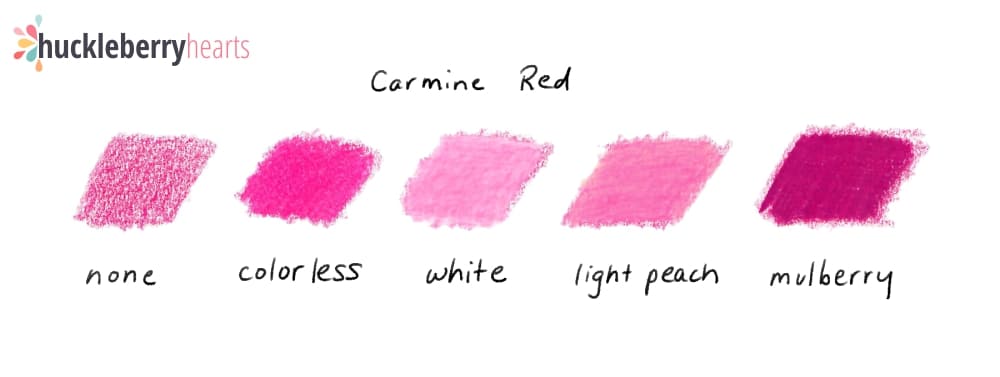 huckleberryhearts
Carmine Red
none
colorless
white
light peach
mulberry